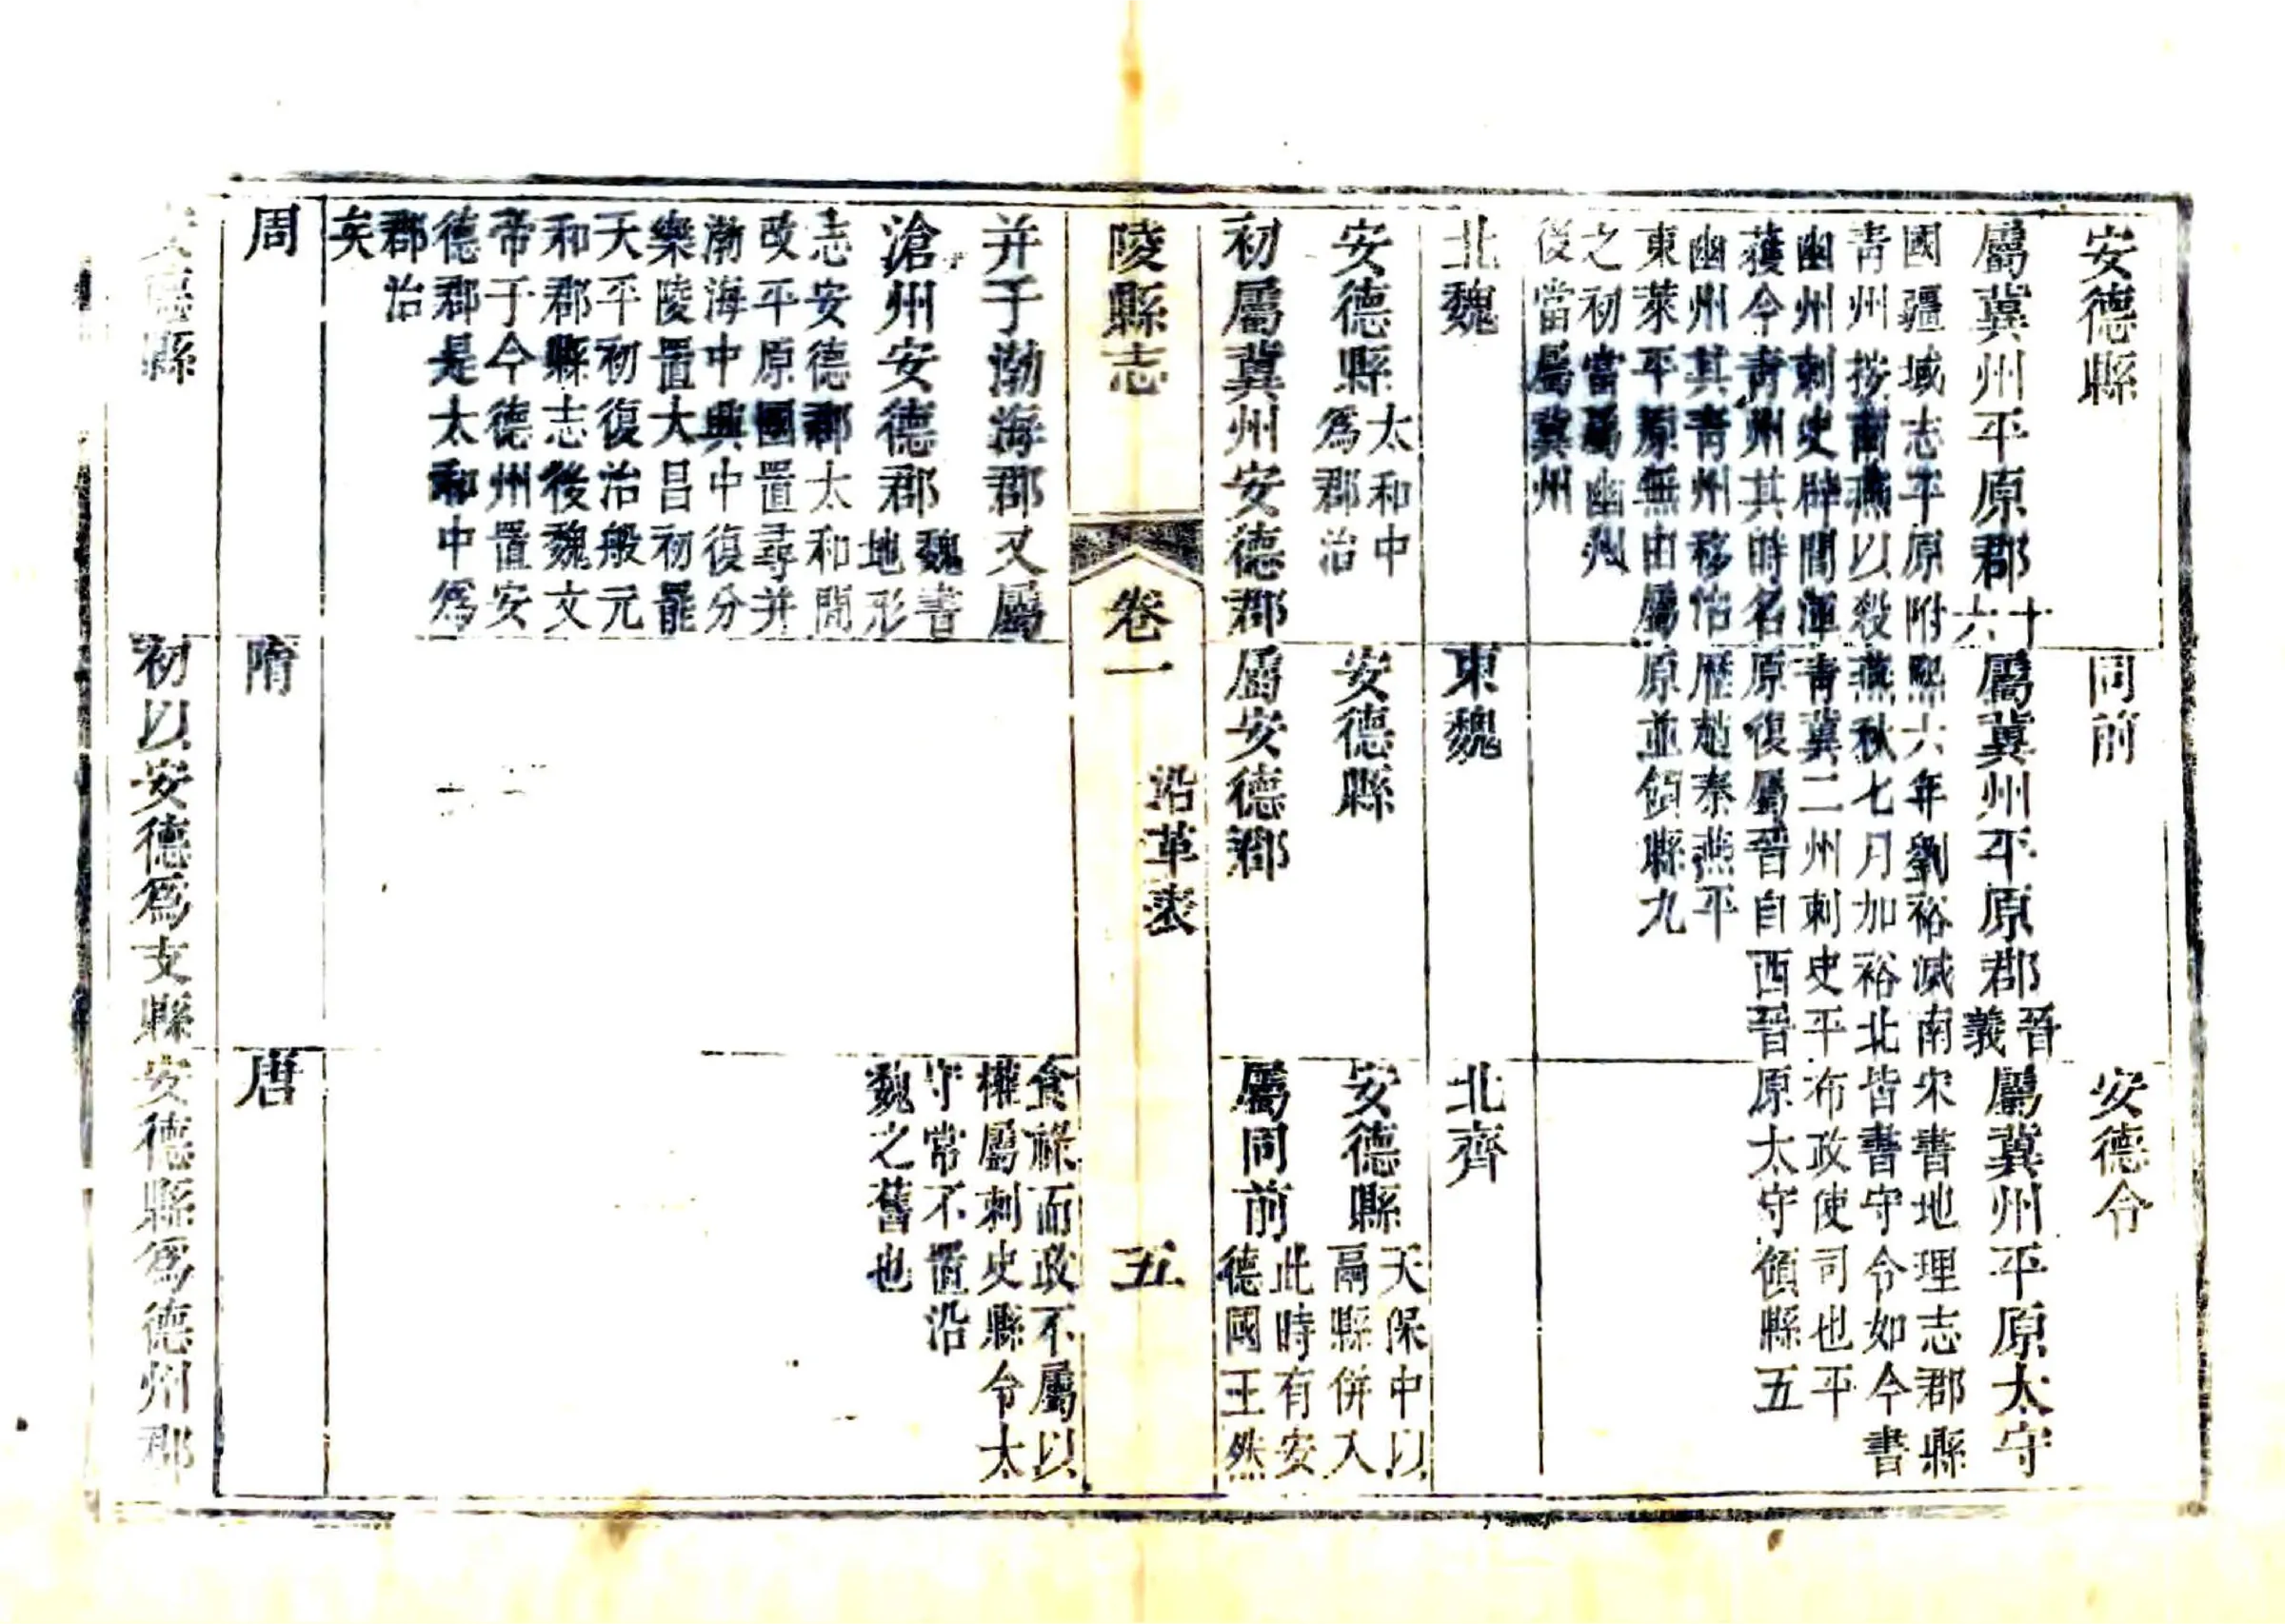 安德縣
屬冀州平原郡十
六
國疆域志平原附
青州按南燕以殺
幽州刺史辟閭渾
獲今青州其時名
幽州其青州移治
東萊平原無由屬
之初當屬幽州
後當屬冀州
同前
屬冀州平原郡晉
義
熙六年劉裕滅南
燕秋七月加裕北
青冀二州刺史平
原復屬晉自西晉
歷趙秦燕平
原並領縣九
安德令
屬冀州平原太守
宋書地理志郡縣
皆書守令如今書
布政使司也平
原太守領縣五
北魏
安德縣太和中
爲郡治
初屬冀州安德郡
東魏
安德縣
屬安德郡
北齊
安德縣天保中以
鬲縣併入
屬同前此時有安
德國王然
陵縣志
卷一
沿革表
五
并于渤海郡又屬
滄州安德郡魏書
地形
志安德郡太和間
改平原國置尋并
渤海中興中復分
樂陵置大昌初罷
天平初復治般元
和郡縣志後魏文
帝于今德州置安
德郡是太和中爲
郡治
矣
食祿而政不屬以
權屬刺史縣令太
守常不置沿
魏之舊也
周
隋
唐
安德縣
初以安德爲支縣
安德縣爲德州郡